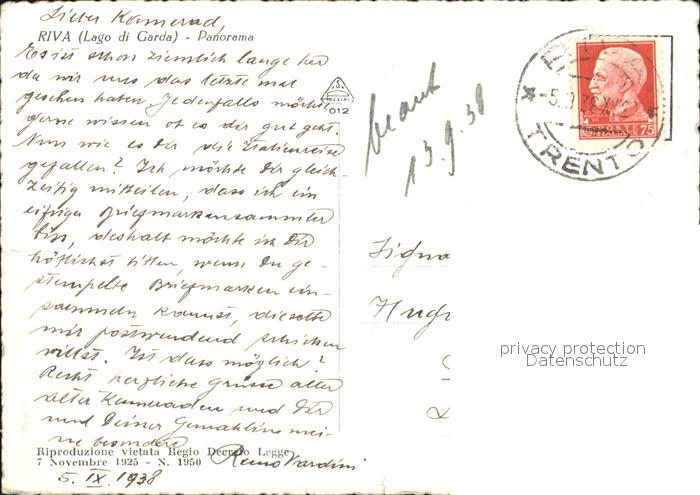 Lieber Kamerad,
RIVA (Lago di Garda) - Panorama
Es ist schon ziemlich lange her
da wir uns das letzte mal
gesehen haben. Jedenfalls möchte
gerne wissen ob es dir gut geht.
Nun wie es der die Italienreise
gefallen? Ich möchte dir gleich-
zeitig mitteilen, dass ich ein
eifriger Briefmarkensammler
bin, deshalb möchte ich dir
höflichst bitten, wenn du ge-
stempelte Briefmarken ein-
sammeln kannst, dieselbe
mir postwendend schicken
willst. Ist dass möglich?
Recht herzliche Grüsse aller
alter Kameraden und dir
und Deiner Gemahline mei-
ne besondere
Riproduzione vietata Regio Decreto Legge
7 Novembre 1925 - N. 1950
5. IX. 1938
012
beant
13.9.38
RIVA
-5.9.38 XVI
TRENTO
75
Signo
Hug
privacy protection
Datenschutz